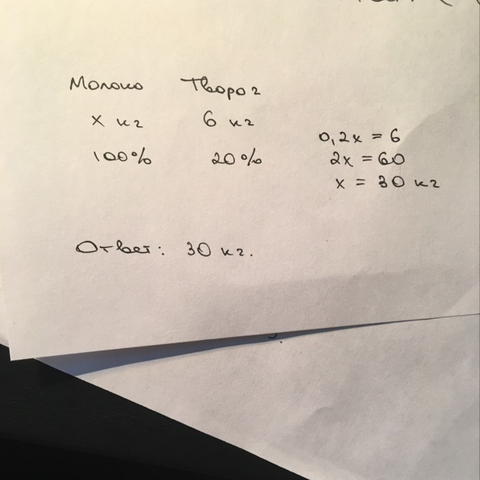 Молоко Творог
x кг 6 кг
100% 20%
0,2x = 6
2x = 60
x = 30 кг
Ответ: 30 кг.